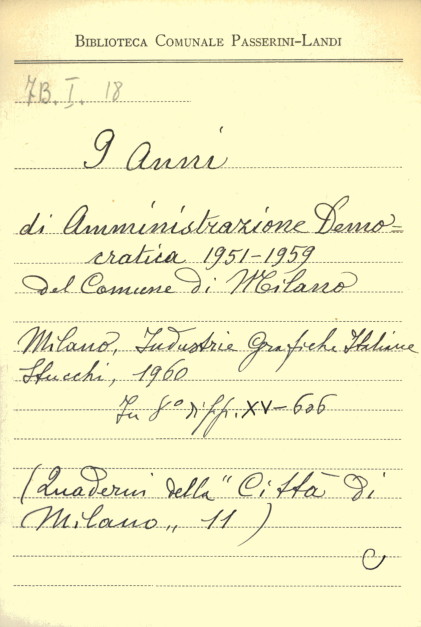 BIBLIOTECA COMUNALE PASSERINI-LANDI
7B. I. 18
9 Anni
di Amministrazione Demo=
cratica 1951-1959
del Comune di Milano
Milano, Industrie Grafiche Italiane
Stucchi, 1960
In 8º di pp. XV-606
(Quaderni della "Città di
Milano„ 11)